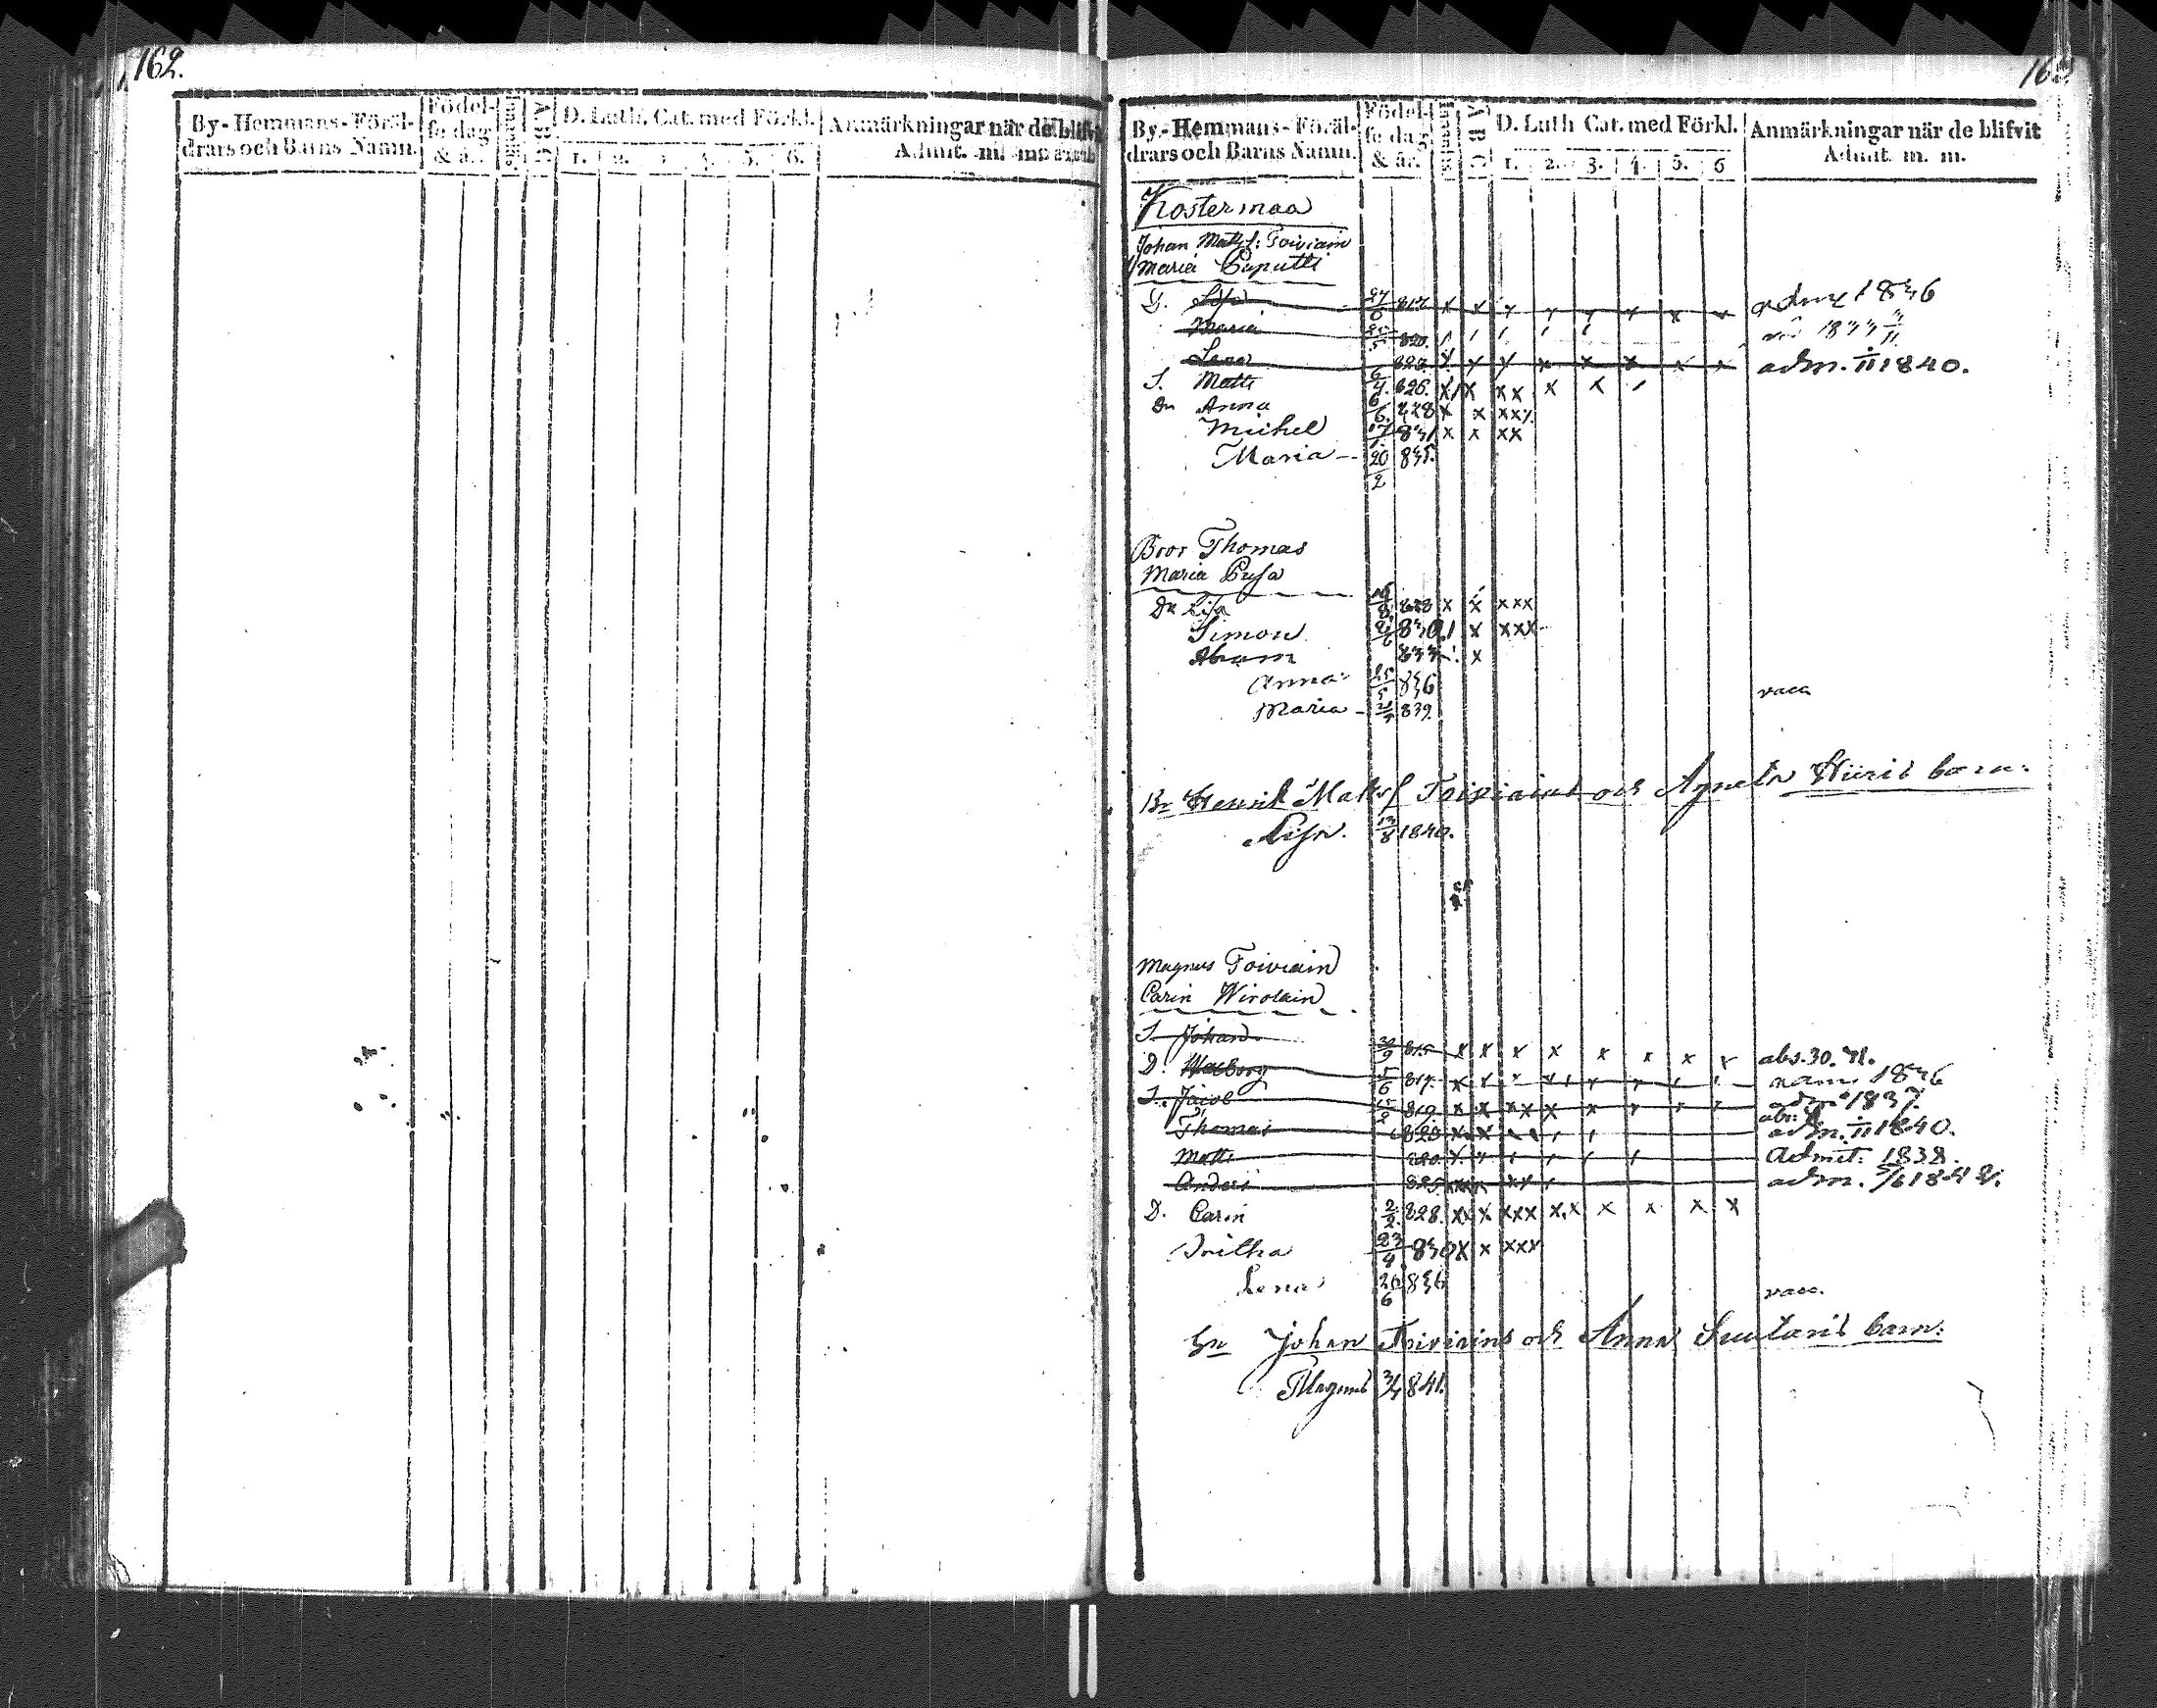 162.
By- Hemmans- Föräl-
drars och Barns Namn.
Födel-
se dag
& år.
ABC
D. Luth. Cat. med Förkl.
1. 2. 3. 4. 5. 6.
Anmärkningar när de blifvit
Admit. m. m.
By- Hemmans- Föräl-
drars och Barns Namn.
Födel-
se dag
& år.
Innanläs.
ABC
D. Luth Cat. med Förkl.
1. 2. 3. 4. 5. 6
Anmärkningar när de blifvit
Admit. m. m.
Kostermaa
Johan Matss: Toiviain
Maria Caputti
D. 27/6 817. x x x x x x x x adm. 1836
Maria 25/5 820.
Lena 823. x x x x x x x x adm. 1840.
S. Matts 6/4. 826. x x x x x x
Dr Anna 6/6. 828 x x x x x
Michel 17/1. 831 x x x x
Maria 20/2 835.
Bror Thomas
Maria Pusa
Dr Lisa 828 x x x x x
Simon 830. x x x x
Abram 833 x
Anna 15/5 836 vacc
Maria 839.
Br Henrik Matss Toiviains och Agneta Hiiris barn:
Lisa. 13/8 1840.
Magnus Toiviain
Carin Wirolain
S. Johan 30/9 815 x x x x x x x x abs. 30. 41.
D. Walborg 5/6 817. 1836
S. Jacob 819. x x x x x x adm 1837.
Thomas 820 adm. 1840.
Matts 820. Admit: 1838.
Anders 825. adm. 5/6 1842.
D. Carin 2/2. 828. x x x x x x x x x x x x
Britha 23/4 830 x x x x x
Lena 26/6 836 vacc.
Johan Toiviains och Anna Suutaris barn:
Magnus 3/4 841.